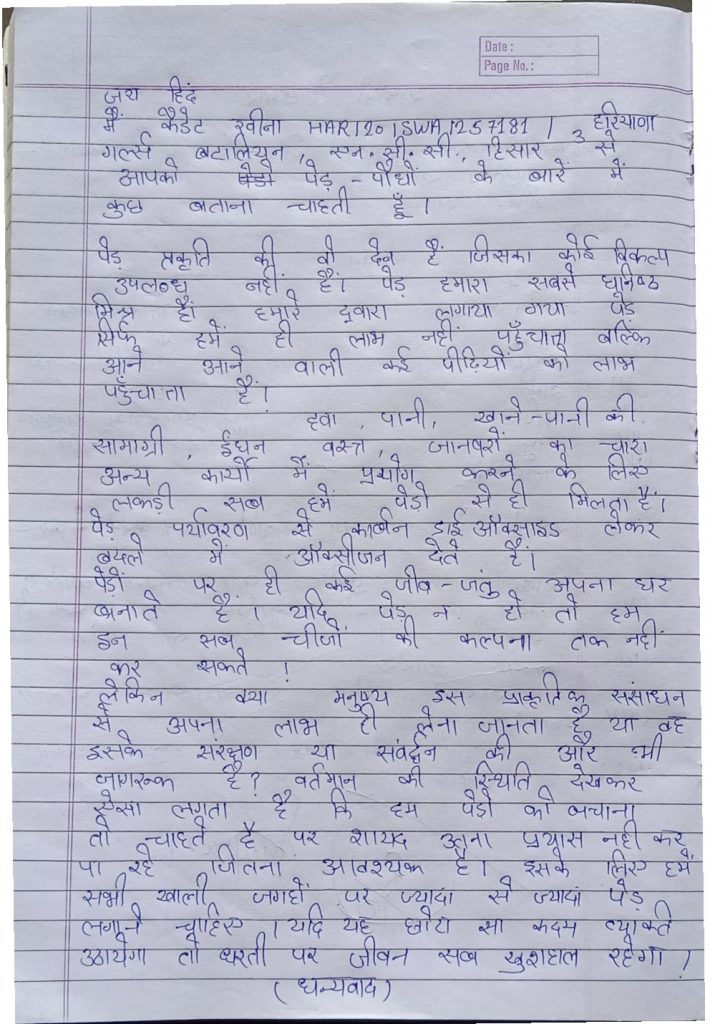 Date :
Page No. :
जय हिंद
मैं कैडेट रवीना HAR120 ISWA 1257181 / 3 हरियाणा
गर्ल्स बटालियन, एन.सी.सी., हिसार से
आपको पेड़-पौधों के बारें में
कुछ बताना चाहती हूँ।
पेड़ प्रकृति की वो देन हैं जिसका कोई विकल्प
उपलब्ध नहीं हैं। पेड़ हमारा सबसे घनिष्ठ
मित्र हैं। हमारे द्वारा लगाया गया पेड़
सिर्फ हमें ही लाभ नहीं पहुँचाता बल्कि
आने आने वाली कई पीढ़ियों को लाभ
पहुँचाता हैं।
हवा, पानी, खाने-पानी की
सामाग्री, ईंधन वस्त्र, जानवरों का चारा
अन्य कार्यों में प्रयोग करने के लिए
लकड़ी सब हमें पेड़ो से ही मिलता हैं।
पेड़ पर्यावरण से कार्बन डाईऑक्साइड लेकर
बदले में ऑक्सीजन देते हैं।
पेड़ों पर ही कई जीव-जंतु अपना घर
बनाते है। यदि पेड़ न हो तो हम
इन सब चीजों की कल्पना तक नहीं
कर सकते।
लेकिन क्या मनुष्य इस प्राकृतिक संसाधन
से अपना लाभ ही लेना जानता है या वह
इसके संरक्षण या संवर्द्धन की और भी
जागरूक है? वर्तमान की स्थिति देखकर
ऐसा लगता है कि हम पेड़ो को बचाना
तो चाहते है पर शायद उतना प्रयास नही कर
पा रहे जितना आवश्यक है। इसके लिए हमें
सभी खाली जगहों पर ज्यादा से ज्यादा पेड़
लगाने चाहिए। यदि यह छोटा सा कदम व्यक्ति
उठायेगा तो धरती पर जीवन सब खुशहाल रहेगा।
(धन्यवाद)